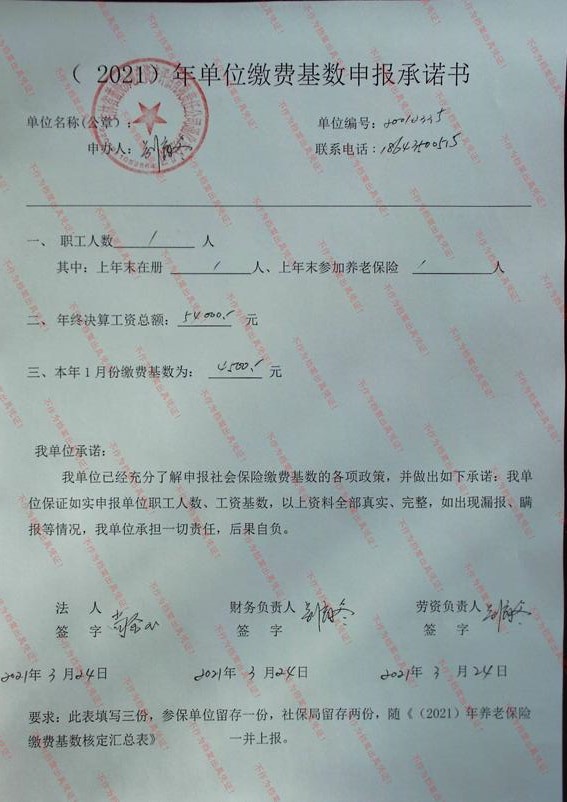 （ 2021）年单位缴费基数申报承诺书
单位名称(公章）： 单位编号：20012335
申办人： 联系电话：18643500515
一、 职工人数 1 人
其中：上年末在册 1 人、上年末参加养老保险 1 人
二、年终决算工资总额：54000.- 元
三、本年1月份缴费基数为： 4500.- 元
我单位承诺：
我单位已经充分了解申报社会保险缴费基数的各项政策，并做出如下承诺：我单
位保证如实申报单位职工人数、工资基数，以上资料全部真实、完整，如出现漏报、瞒
报等情况，我单位承担一切责任，后果自负。
法 人 财务负责人 劳资负责人
签 字 签 字 签 字
2021年 3 月24日 2021年 3 月24日 2021年 3 月24日
要求：此表填写三份，参保单位留存一份，社保局留存两份，随《（2021）年养老保险
缴费基数核定汇总表》 一并上报。
不作为档案出具凭证！